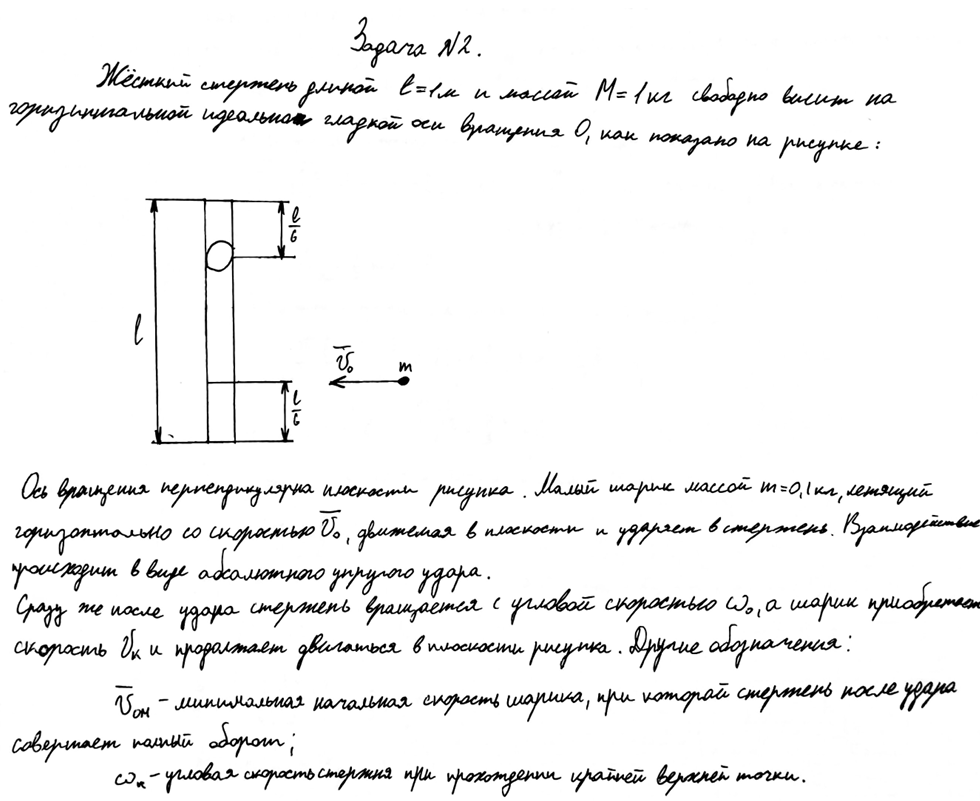 Задача №2.
Жёсткий стержень длиной ℓ=1м и массой M=1кг свободно висит на
горизонтальной идеально гладкой оси вращения O, как показано на рисунке:
ℓ/6
ℓ
V̅₀ m
ℓ/6
Ось вращения перпендикулярна плоскости рисунка. Малый шарик массой m=0,1кг, летящий
горизонтально со скоростью V̅₀, движемая в плоскости и ударяет в стержень. Взаимодействие
происходит в виде абсалютного упругого удара.
Сразу же после удара стержень вращается с угловой скоростью ω₀, а шарик приобретает
скорость V̅ₖ и продолжает двигаться в плоскости рисунка. Другие обозначения:
V̅ₒₘ – минимальная начальная скорость шарика, при которой стержень после удара
совершает полный оборот;
ωₖ – угловая скорость стержня при прохождении крайней верхней точки.